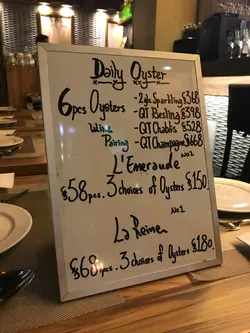 Daily Oyster
6pcs Oysters
Wine
Pairing
- 2gls Sparkling $368
- GT Riesling $398
- GT Chablis $528
- GT Champagne $668
L'Emeraude No2
$58pcs. 3 choices of Oysters $150
La Reine No1
$68pcs. 3 choices of Oysters $180